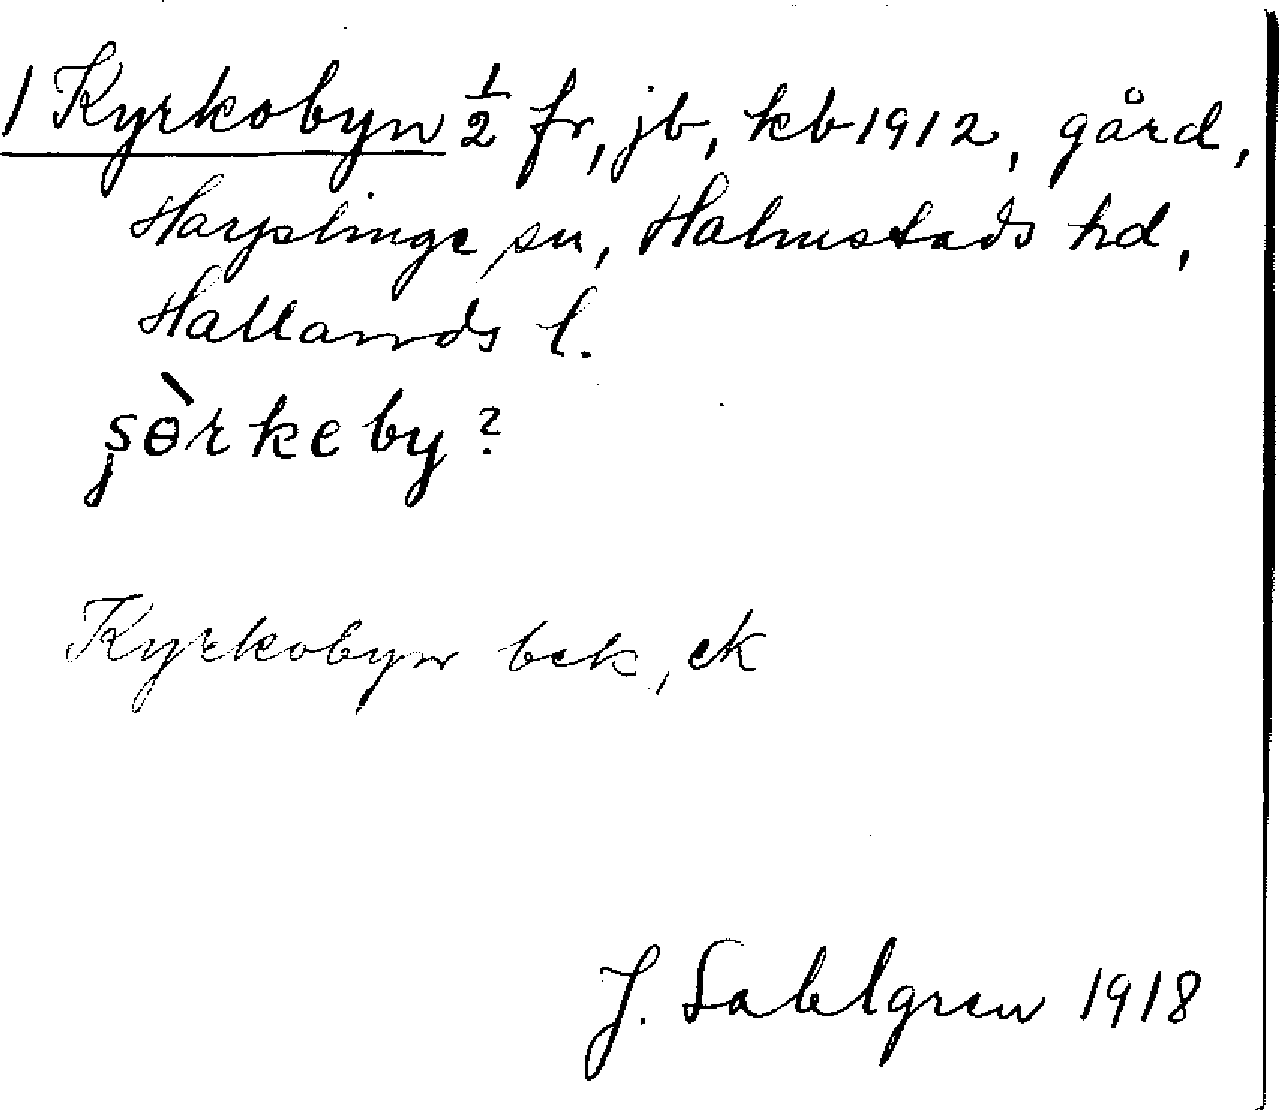 1 Kyrkobyn 1/2 fr, jb, kb 1912, gård,
Harplinge sn, Halmstads hd,
Hallands l.
şɵ̀rkeby?
Kyrkobyn bek, ek
J. Sahlgren 1918